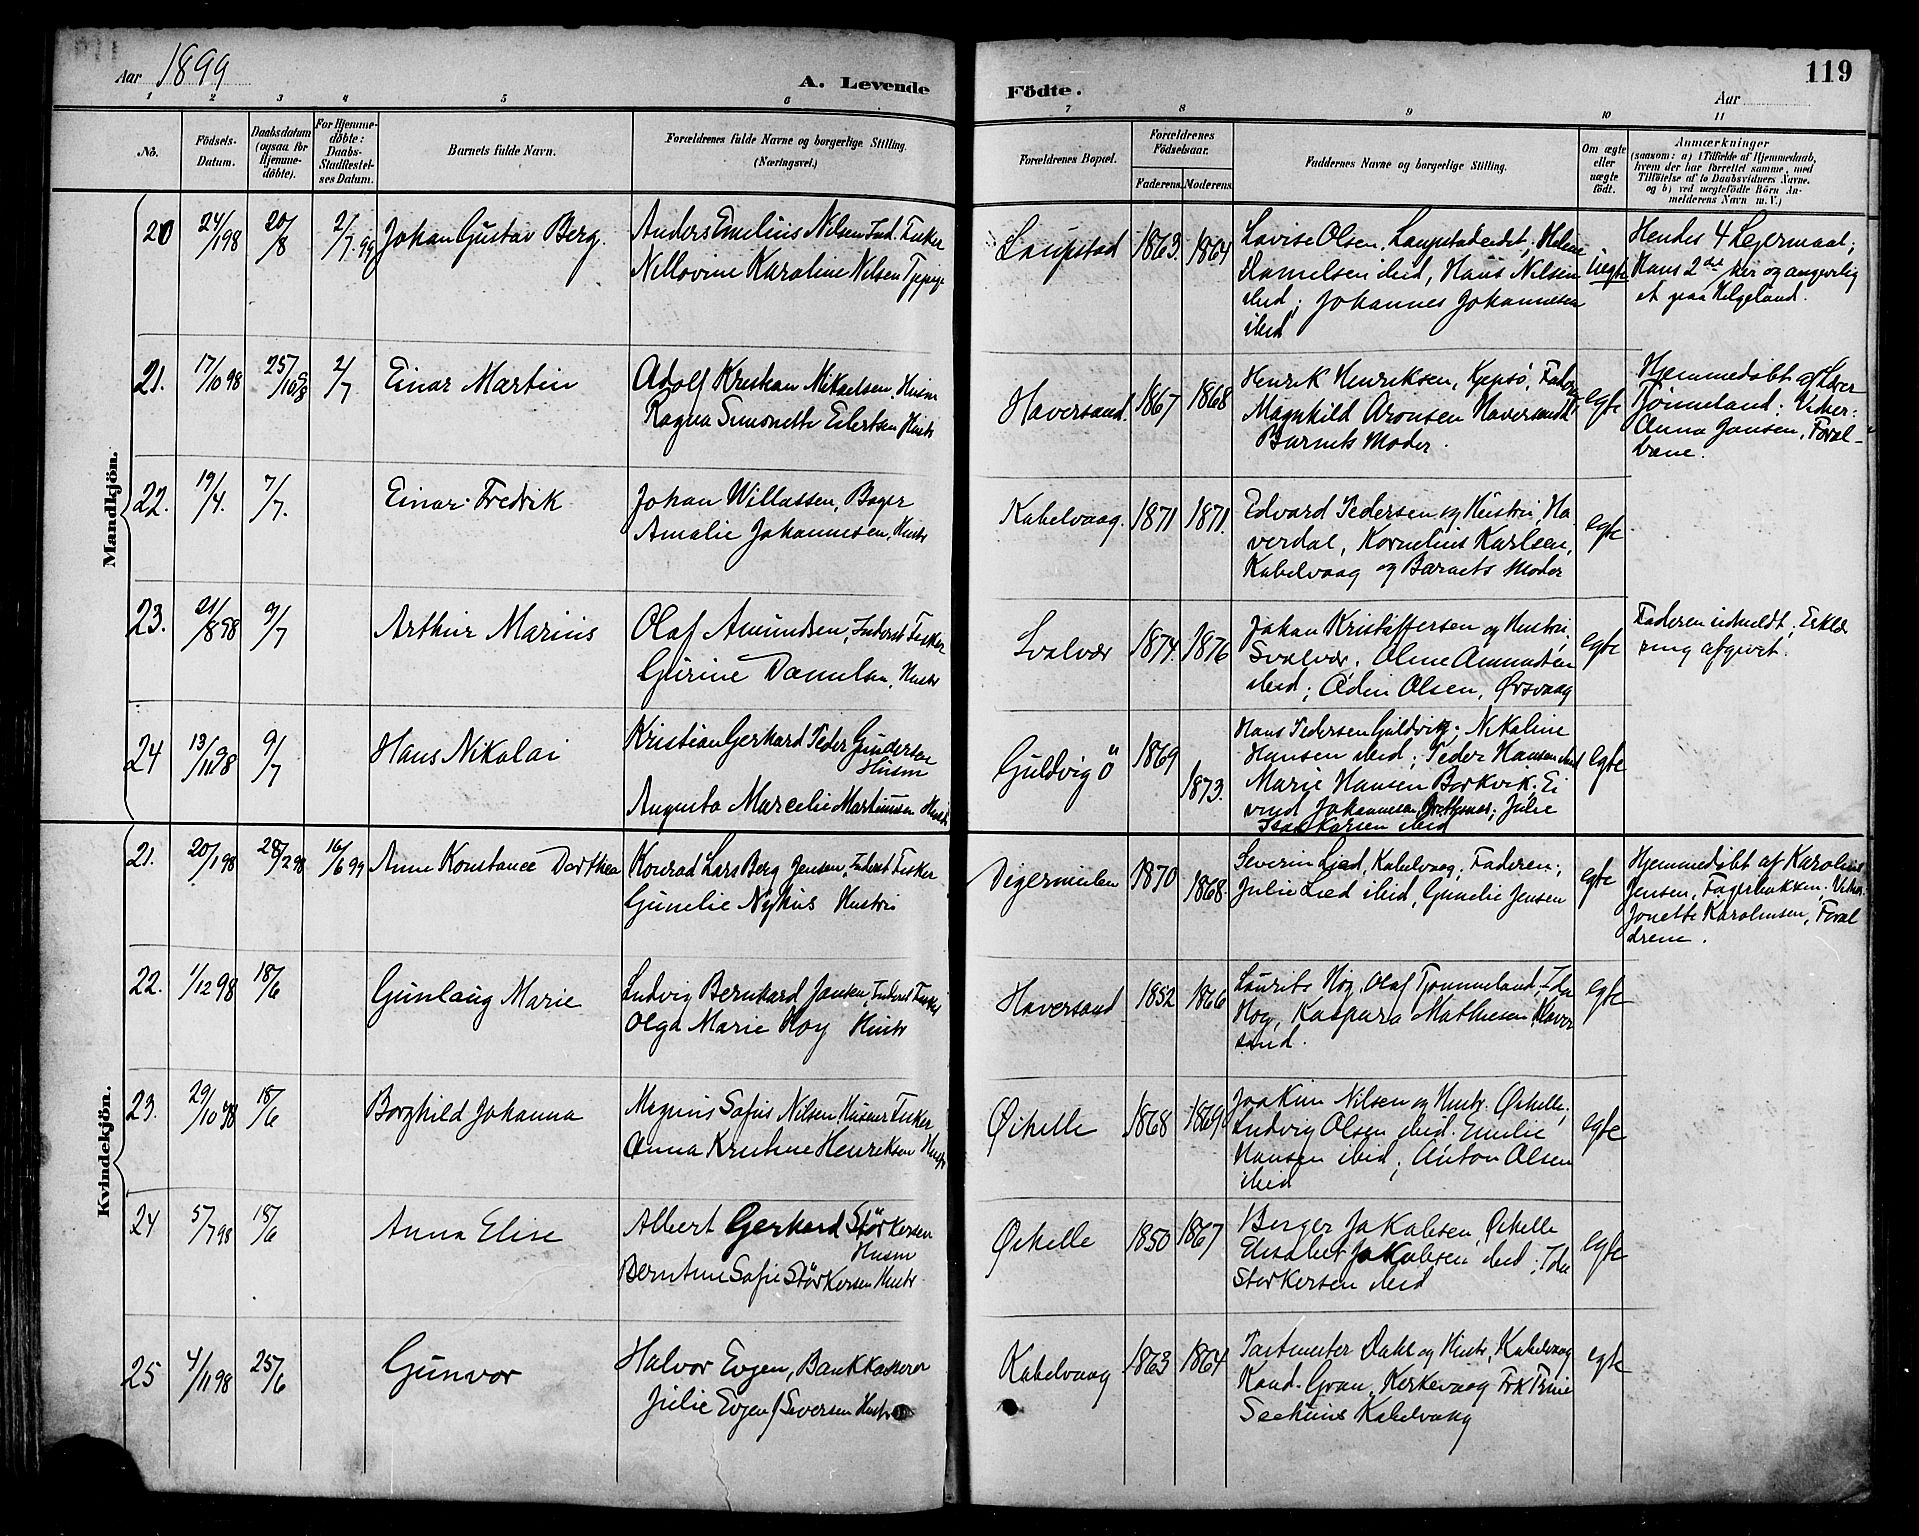 Aar 1899
A. Levende
Födte.
119
Aar
1 2 3 4 5 6 7 8 9 10 11
No.
Födsels-
Datum.
Daabsdatum
(ogsaa for
Hjemme-
döbte).
For Hjemme-
döbte:
Daabs-
Stadfæstel-
ses Datum.
Barnets fulde Navn.
Forældrenes fulde Navne og borgerlige Stilling.
(Næringsvei.)
Forældrenes Bopæl.
Forældrenes
Födselsaar.
Faderens. Moderens.
Faddernes Navne og borgerlige Stilling.
Om ægte
eller
uægte
födt.
Anmærkninger
(saasom: a) i Tilfælde af Hjemmedaab,
hvem der har forrettet samme, med
Tilföielse af to Daabsvidners Navne.
og b) ved uægtefödte Börn An-
melderens Navn m. V.)
Mandkjön.
20 24/1 98 20/8 2/7 99 Johan Gustav Berg.
Anders Emilius Nilsen Ind. Fisker
Nellovine Karoline Nilsen
Laupstad 1863. 1864
Lovise Olsen, Laupstadeidet; Helene
ibid, Hans Nilsen
ibid; Johannes Johannesen
ibid
uegte
Hendes 4 Leiermaal;
Hans 2det her og angivelig
et paa Helgeland.
21. 17/10 98 25/10 98 2/7 Einar Martin
Adolf Kristian Mikaelsen, Husm
Ragna Simonette Eilertsen Hustr
Haversand. 1867 1868
Henrik Henriksen, Kjepsø, Faderen
Magnhild Aronsen Haversand
Barnets Moder.
egte
Hjemmedøbt af Lærer
Tjønneland: Vidner:
Anna Jansen, Foræl-
22. 19/4. 7/7. Einar Fredrik
Johan Willassen, Bager
Amalie Johannesen, Hustr
Kabelvaag. 1871 1871.
Edvard Pedersen og Hustru, Ha
verdal, Kornelius Karlsen,
Kabelvaag og Barnets Moder
egte
23. 21/8 98 9/7 Arthur Marius
Olaf Amundsen, Inderst Fisker
Gurine Danielsen, Hustr
Svolvær 1874. 1876
Johan Kristoffersen og Hustru,
Svolvær. Oline Amundsen
ibid; Odin Olsen, Ørsvaag
egte
Faderen udmeldt, Erklæ
ring afgivet.
24 13/11 98 9/7 Hans Nikolai
Kristian Gerhard Peder Gundersen
Husm
Augusta Marcelie Martinusen Hustr
Guldvig Ö 1869 1873.
Hans Pedersen Guldvig; Nikoline
Hansen ibid; Peder Hansen ibid
Marie Hansen Borkvik. Ei
vind Johannesen; Julie
Isaksen ibid
egte
Kvindekjön.
21. 20/1 98 28/2 98 16/6 99 Anne Konstance Dorthea
Konrad Lars Berg Jensen, Inderst Fisker
Gunelie Nyhus Hustru
Digermulen 1870 1868
Severin Lied, Kabelvaag, Faderen;
Julie Lied ibid, Gunelie Jensen
egte
Hjemmedøbt af Karoline
Jensen, Fagerbakken; Vidner
Jonette Karolinsen, Foræl
drene.
22. 1/12 98 18/6 Gunlaug Marie
Ludvig Bernhard Jansen, Inderst Fisker
Olga Marie Høy Hustr
Haversand 1852 1866
Laurits Høg, Olaf Tjønneland, Ida
Høg, Kaspara Mathiesen Haver
sand.
egte
23. 29/10 98 18/6 Borghild Johanna
Magnus Sofus Nilsen, Huseier Fisker
Anna Kristine Henriksen Hustr
Øihelle 1868 1869
Joakim Nilsen og Hustr. Øihelle;
Ludvig Olsen ibid. Emilie
Hansen ibid; Anton Olsen
ibid
egte
24 5/7 98 18/6 Anna Elise
Albert Gerhard Störkersen
Husm
Berntine Sofie Störkersen Hustr.
Øihelle 1850 1867
Berger Jakobsen, Øihelle
Elisabet Jakobsen ibid; Ida
Storkersen ibid
egte
25 4/11 98 25/6 Gunvor
Halvor Evjen, Bankkasserer
Julie Evjen f Seversen Hustr
Kabelvaag 1863 1864
Postmester Dahl og Hustr, Kabelvaag
Kand. Gran, Kirkevaag Frk Trine
Kabelvaag
egte